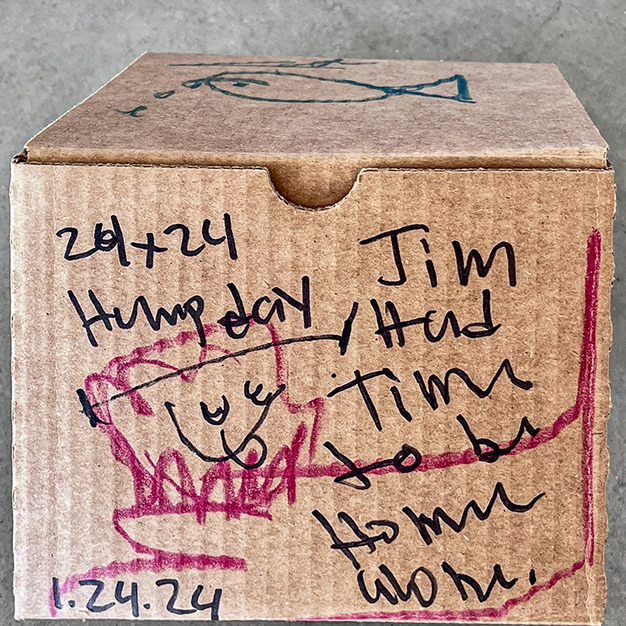 24x24
Hump day
1.24.24
Jim
Had
Time
to be
Home
alone.